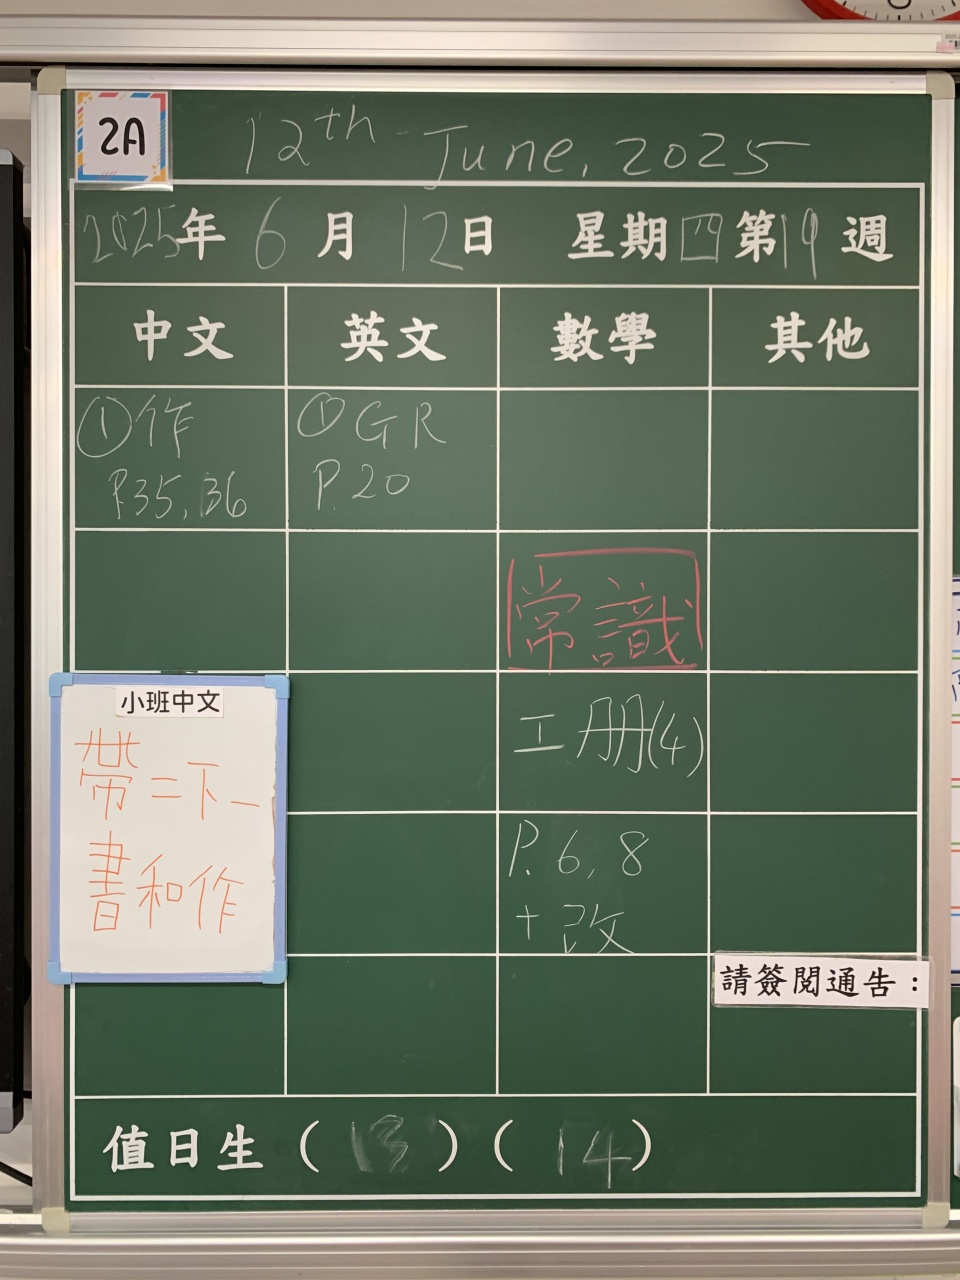 2A
12th June, 2025
2025年6月12日 星期四第19週
中文 英文 數學 其他
①作 ①GR
P.35, 36 P.20
常識
小班中文
工册(4)
帶二下一
P. 6, 8
書和作
+改
請簽閱通告：
值日生（13）（14）